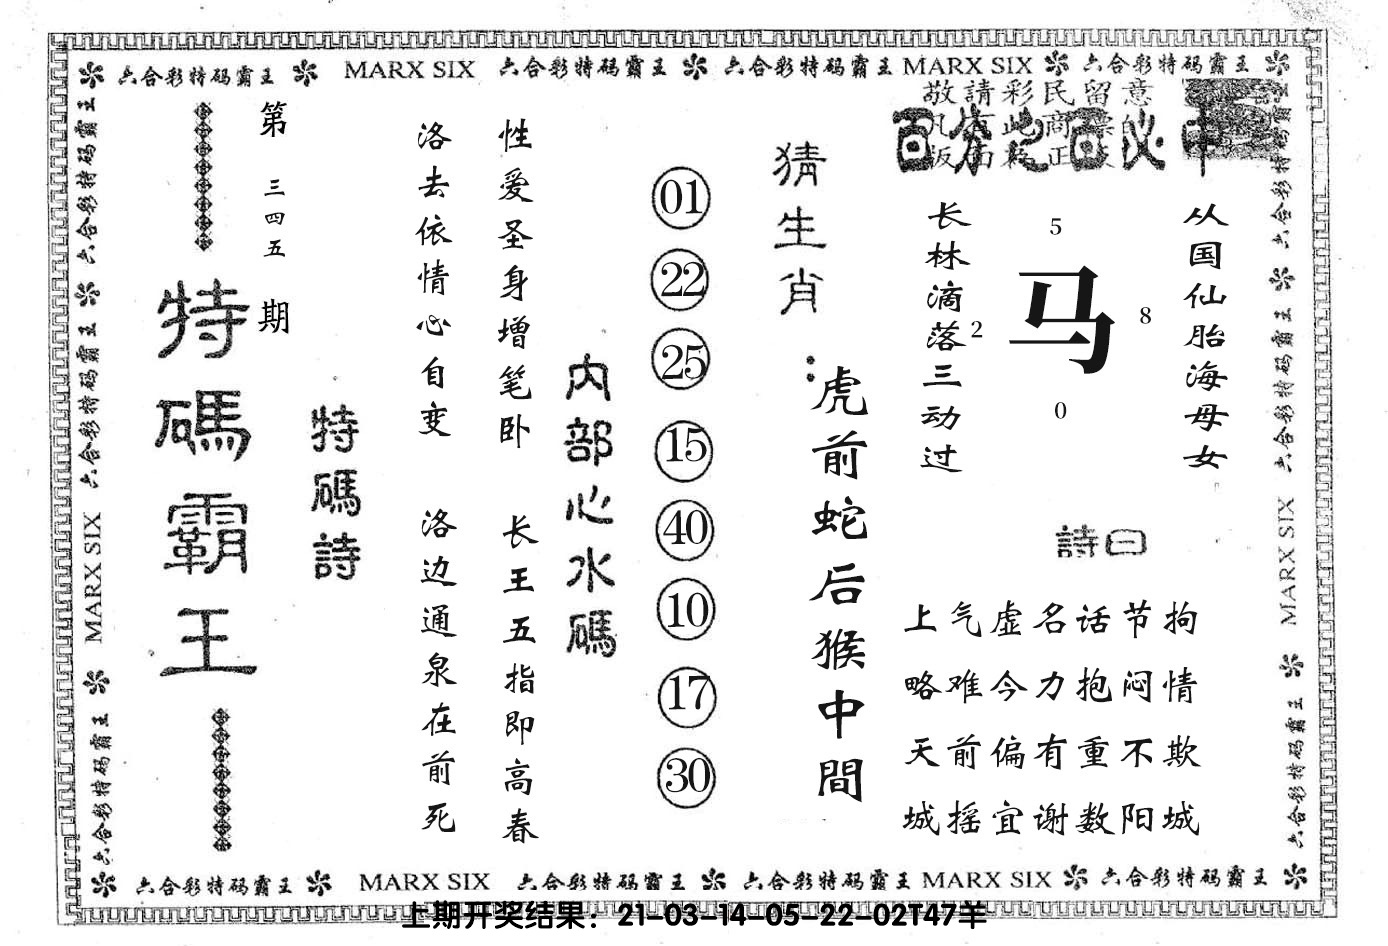 六合彩特码霸王 MARX SIX 六合彩特码霸王 六合彩特码霸王 MARX SIX 六合彩特码霸王
六合彩特码霸王 六合彩特码霸王 MARX SIX 六合彩特码霸王
第三四五期
特碼霸王
特碼詩
洛去依情心自变
洛边通泉在前死
性爱圣身增笔卧
长王五指即高春
内部心水碼
01
22
25
15
40
10
17
30
猜生肖：
虎前蛇后猴中間
敬請彩民留意
百分之百必中
长林滴落三动过
5
2
马
8
0
从国仙胎海母女
詩曰
上气虚名话节拘
略难今力抱闷情
天前偏有重不欺
城摇宜谢数阳城
六合彩特码霸王 六合彩特码霸王 MARX SIX 六合彩特码霸王
六合彩特码霸王 MARX SIX 六合彩特码霸王 六合彩特码霸王 MARX SIX 六合彩特码霸王
上期开奖结果：21-03-14-05-22-02T47羊